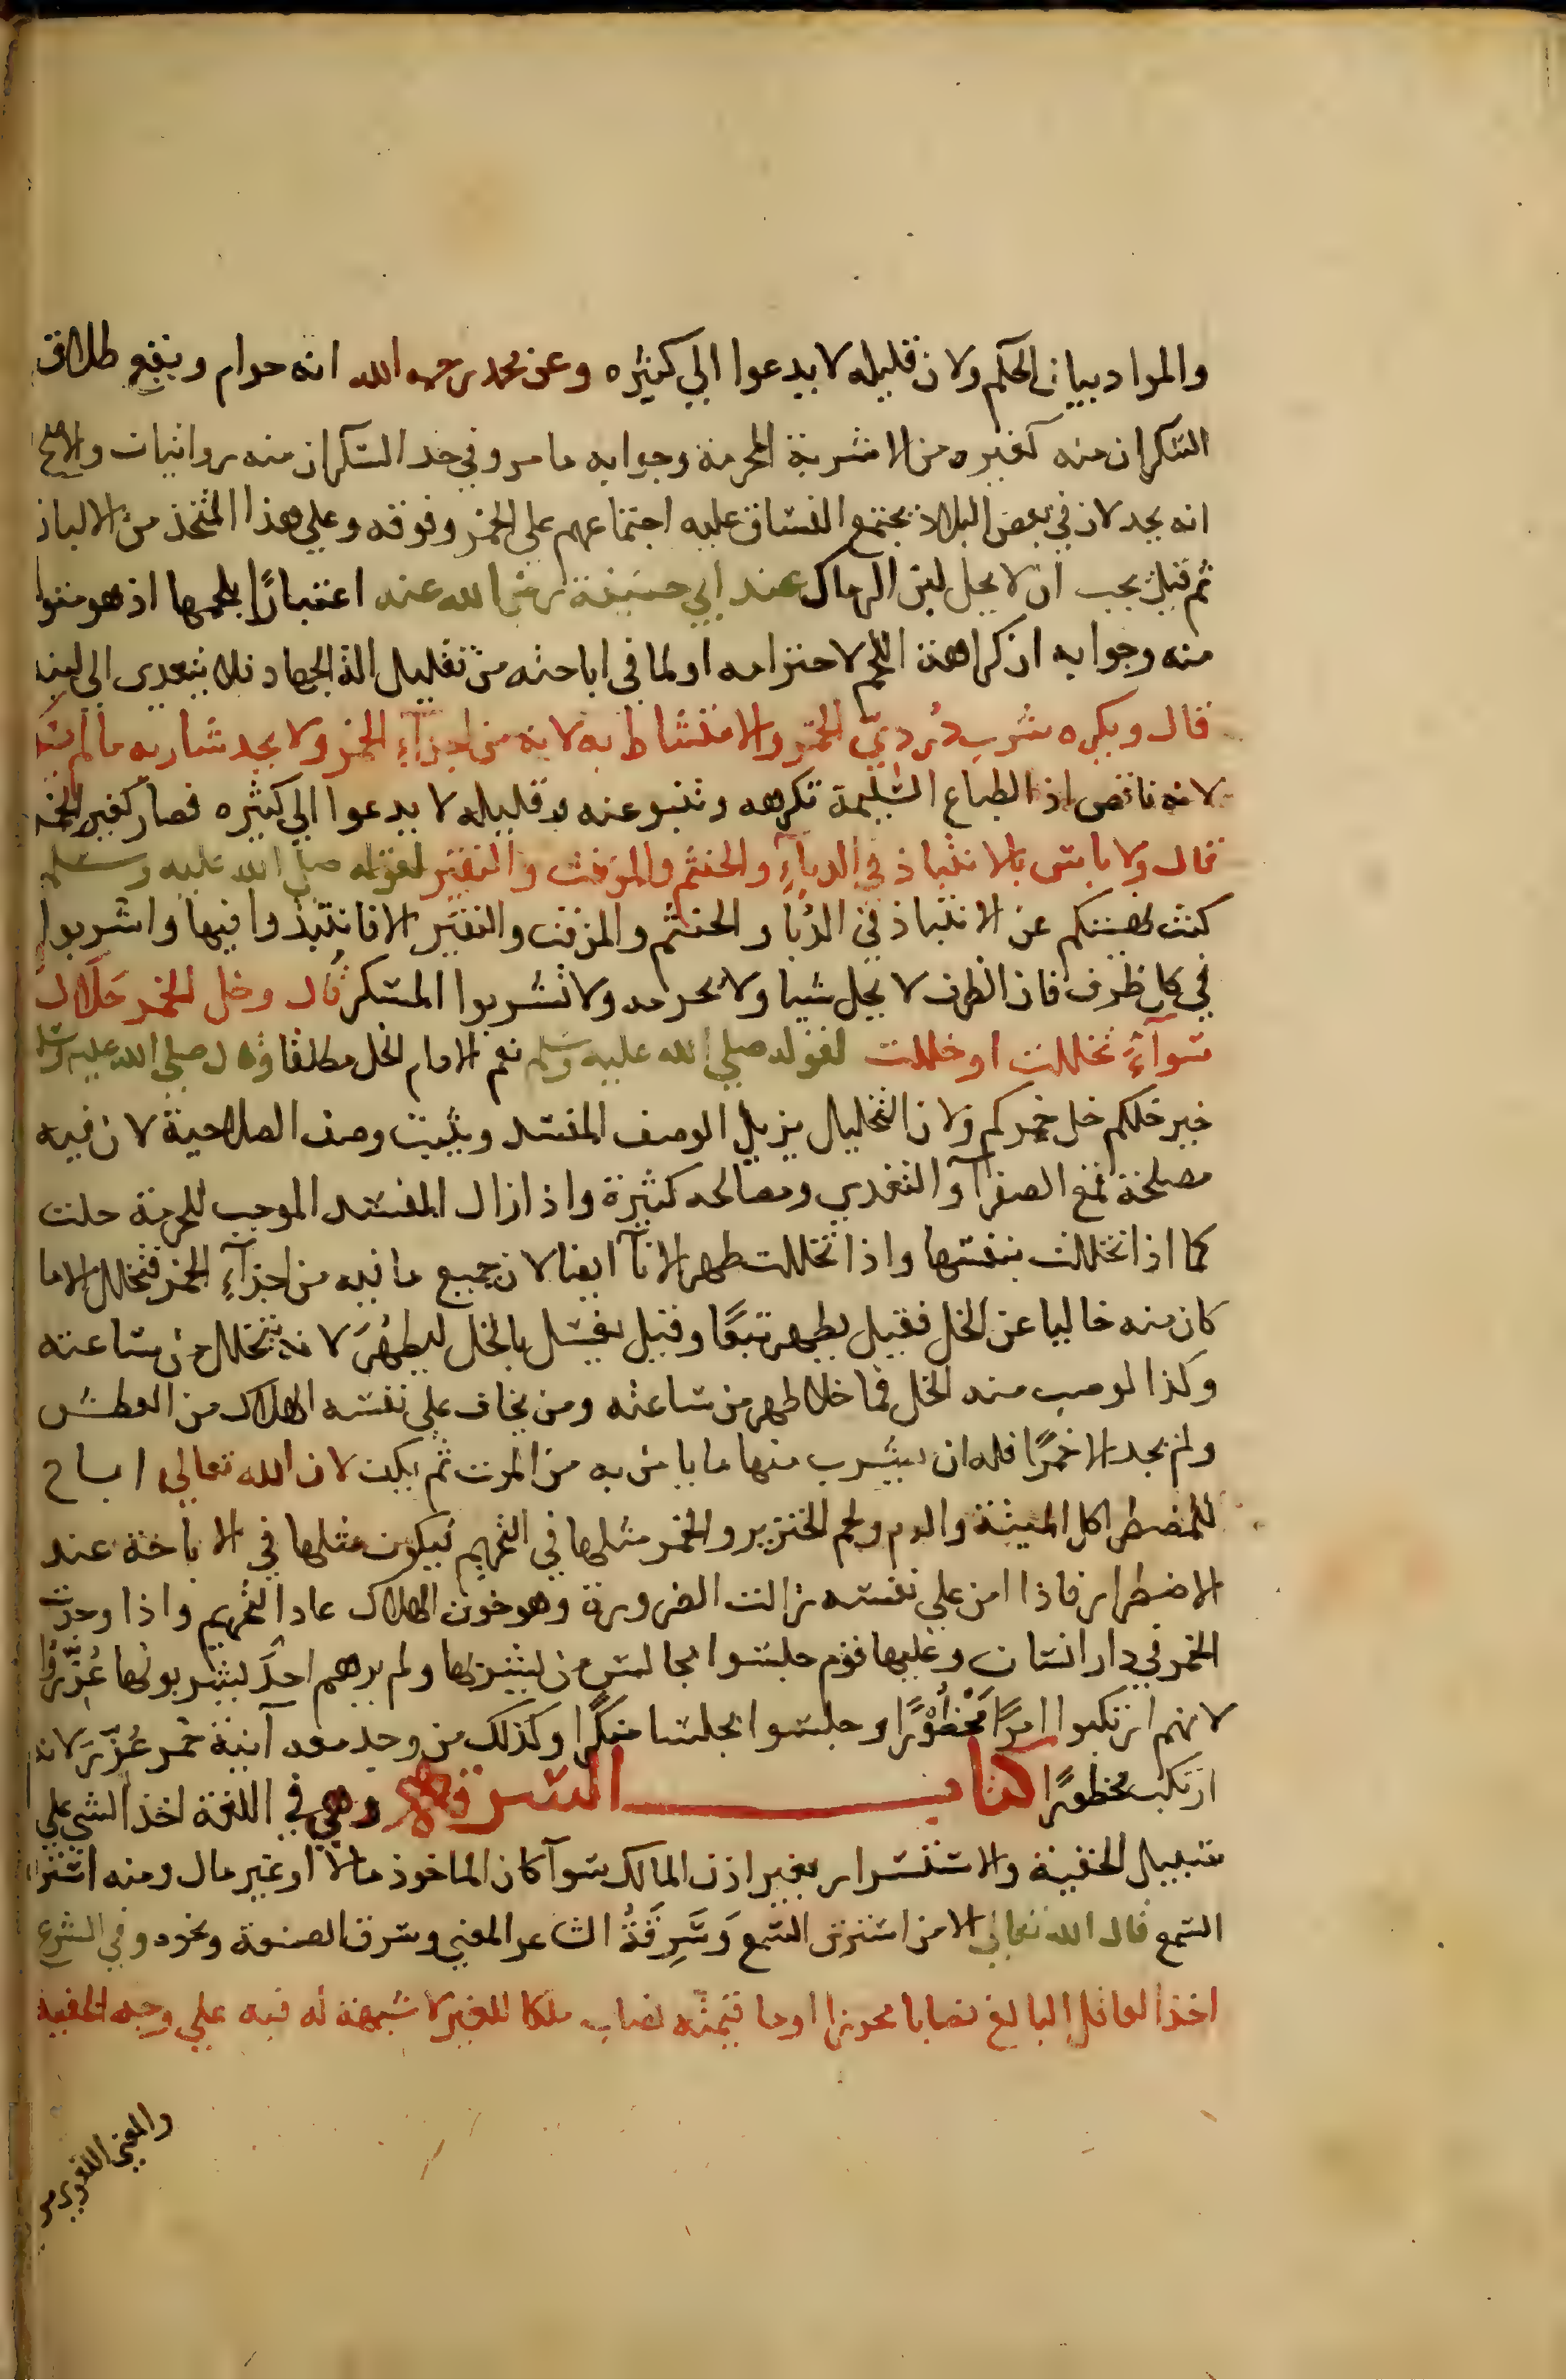 والمراد بيان الحكم ولان قليله لا يدعوا الي كثيره وعن محمد رحمه الله انه حرام ويقع طلاق
السكران منه كغيره من الاشربة المحرمة وجوابه ما مر وفي حد السكران منه روايتان والاصح
انه يحد لان في بعض البلاد يجتمع الفساق عليه اجتماعهم علي الخمر وفوقه وعلي هذا المتخذ من الالبان
ثم قيل يجب ان لا يحل لبن الرماك عند ابي حنيفة رضي الله عنه اعتبارًا بلحمها اذ هو متولد
منه وجوابه ان كراهة اللحم لاحترامه او لما في اباحته من تقليل الة الجهاد فلا يتعدي الي لبنه
قال ويكره شرب دُرديّ الخمر والامتشاط به لانه من اجزآءِ الخمر ولا يحد شاربه ما لم يسكر
لانه ناقص اذ الطباع السليمة تكرهه وتنبو عنه وقليله لا يدعوا الي كثيره فصار كغير الخمر
قال ولا باس بالانتباذ في الدباءِ والحنتم والمزفت والنقير لقوله صلي الله عليه وسلم
كنت نهيتكم عن الانتباذ في الدُبا والحنتم والمزفت والنقير الا فانتبذوا فيها واشربوا
في كل ظرف فان الظرف لا يحل شيا ولا يحرمه ولا تشربوا المسكر قال وخل الخمر حَلَال
سوآءً تخللت او خللت لقوله صلي الله عليه وسلم نعم الادام الخل مطلقا وقال صلي الله عليه وسلم
خير خلكم خل خمركم ولان التخليل يزيل الوصف المفسد ويثبت وصف الصلاحية لان فيه
مصلحة قمع الصفرآ والتغدي ومصالحه كثيرة واذا زال المفسد الموجب للحرمة حلت
كما اذا تخللت بنفسها واذا تخللت طهر الانآ ايضا لان جميع ما فيه من اجزآءِ الخمر فتخلل الا ما
كان منه خاليا عن الخل فقيل يطهر تبعًا وقيل يغسل بالخل ليطهُرَ لانه يتخلل من ساعته
وكذا لو صب منه الخل فما خلا طهر من ساعته ومن يخاف علي نفسه الهلاك من العطش
ولم يجد الا خمرًا فله ان يشرب منها ما يامن به من الموت ثم يكف لان الله تعالي اباح
للمضطر اكل الميتة والدم ولحم الخنزير والخمر مثلها في التحريم فيكون مثلها في الاباحة عند
الاضطرار فاذا امن علي نفسه زالت الضرورة وهو خوف الهلاك عاد التحريم واذا وجدت
الخمر في دار انسان وعليها قوم جلسوا مجالس من يشربها ولم يرهم احدٌ يشربونها عُزِّرُوا
لانهم ارتكبوا امرًا مَحْظُوْرًا وجلسوا مجلسا منكرًا وكذلك من وجد معه آنية خمر عُزِّرَ لانه
ارتكب محظورًا كتاب السرقة وهي في اللغة اخذ الشي علي
سبيل الخفية والاستسرار بغير اذن المالك سوآ كان الماخوذ مالا او غير مال ومنه استراق
السمع قال الله تعالي الا من استرق السمع وَسَرِقَةُ الشاعر المعني وسرق الصنعة ونحوه وفي الشرع
اخذ العاقل البالغ نصابا محرزا او ما قيمته نصاب ملكا للغير لا شبهة له فيه علي وجه الخفية
والمعني اللغوي